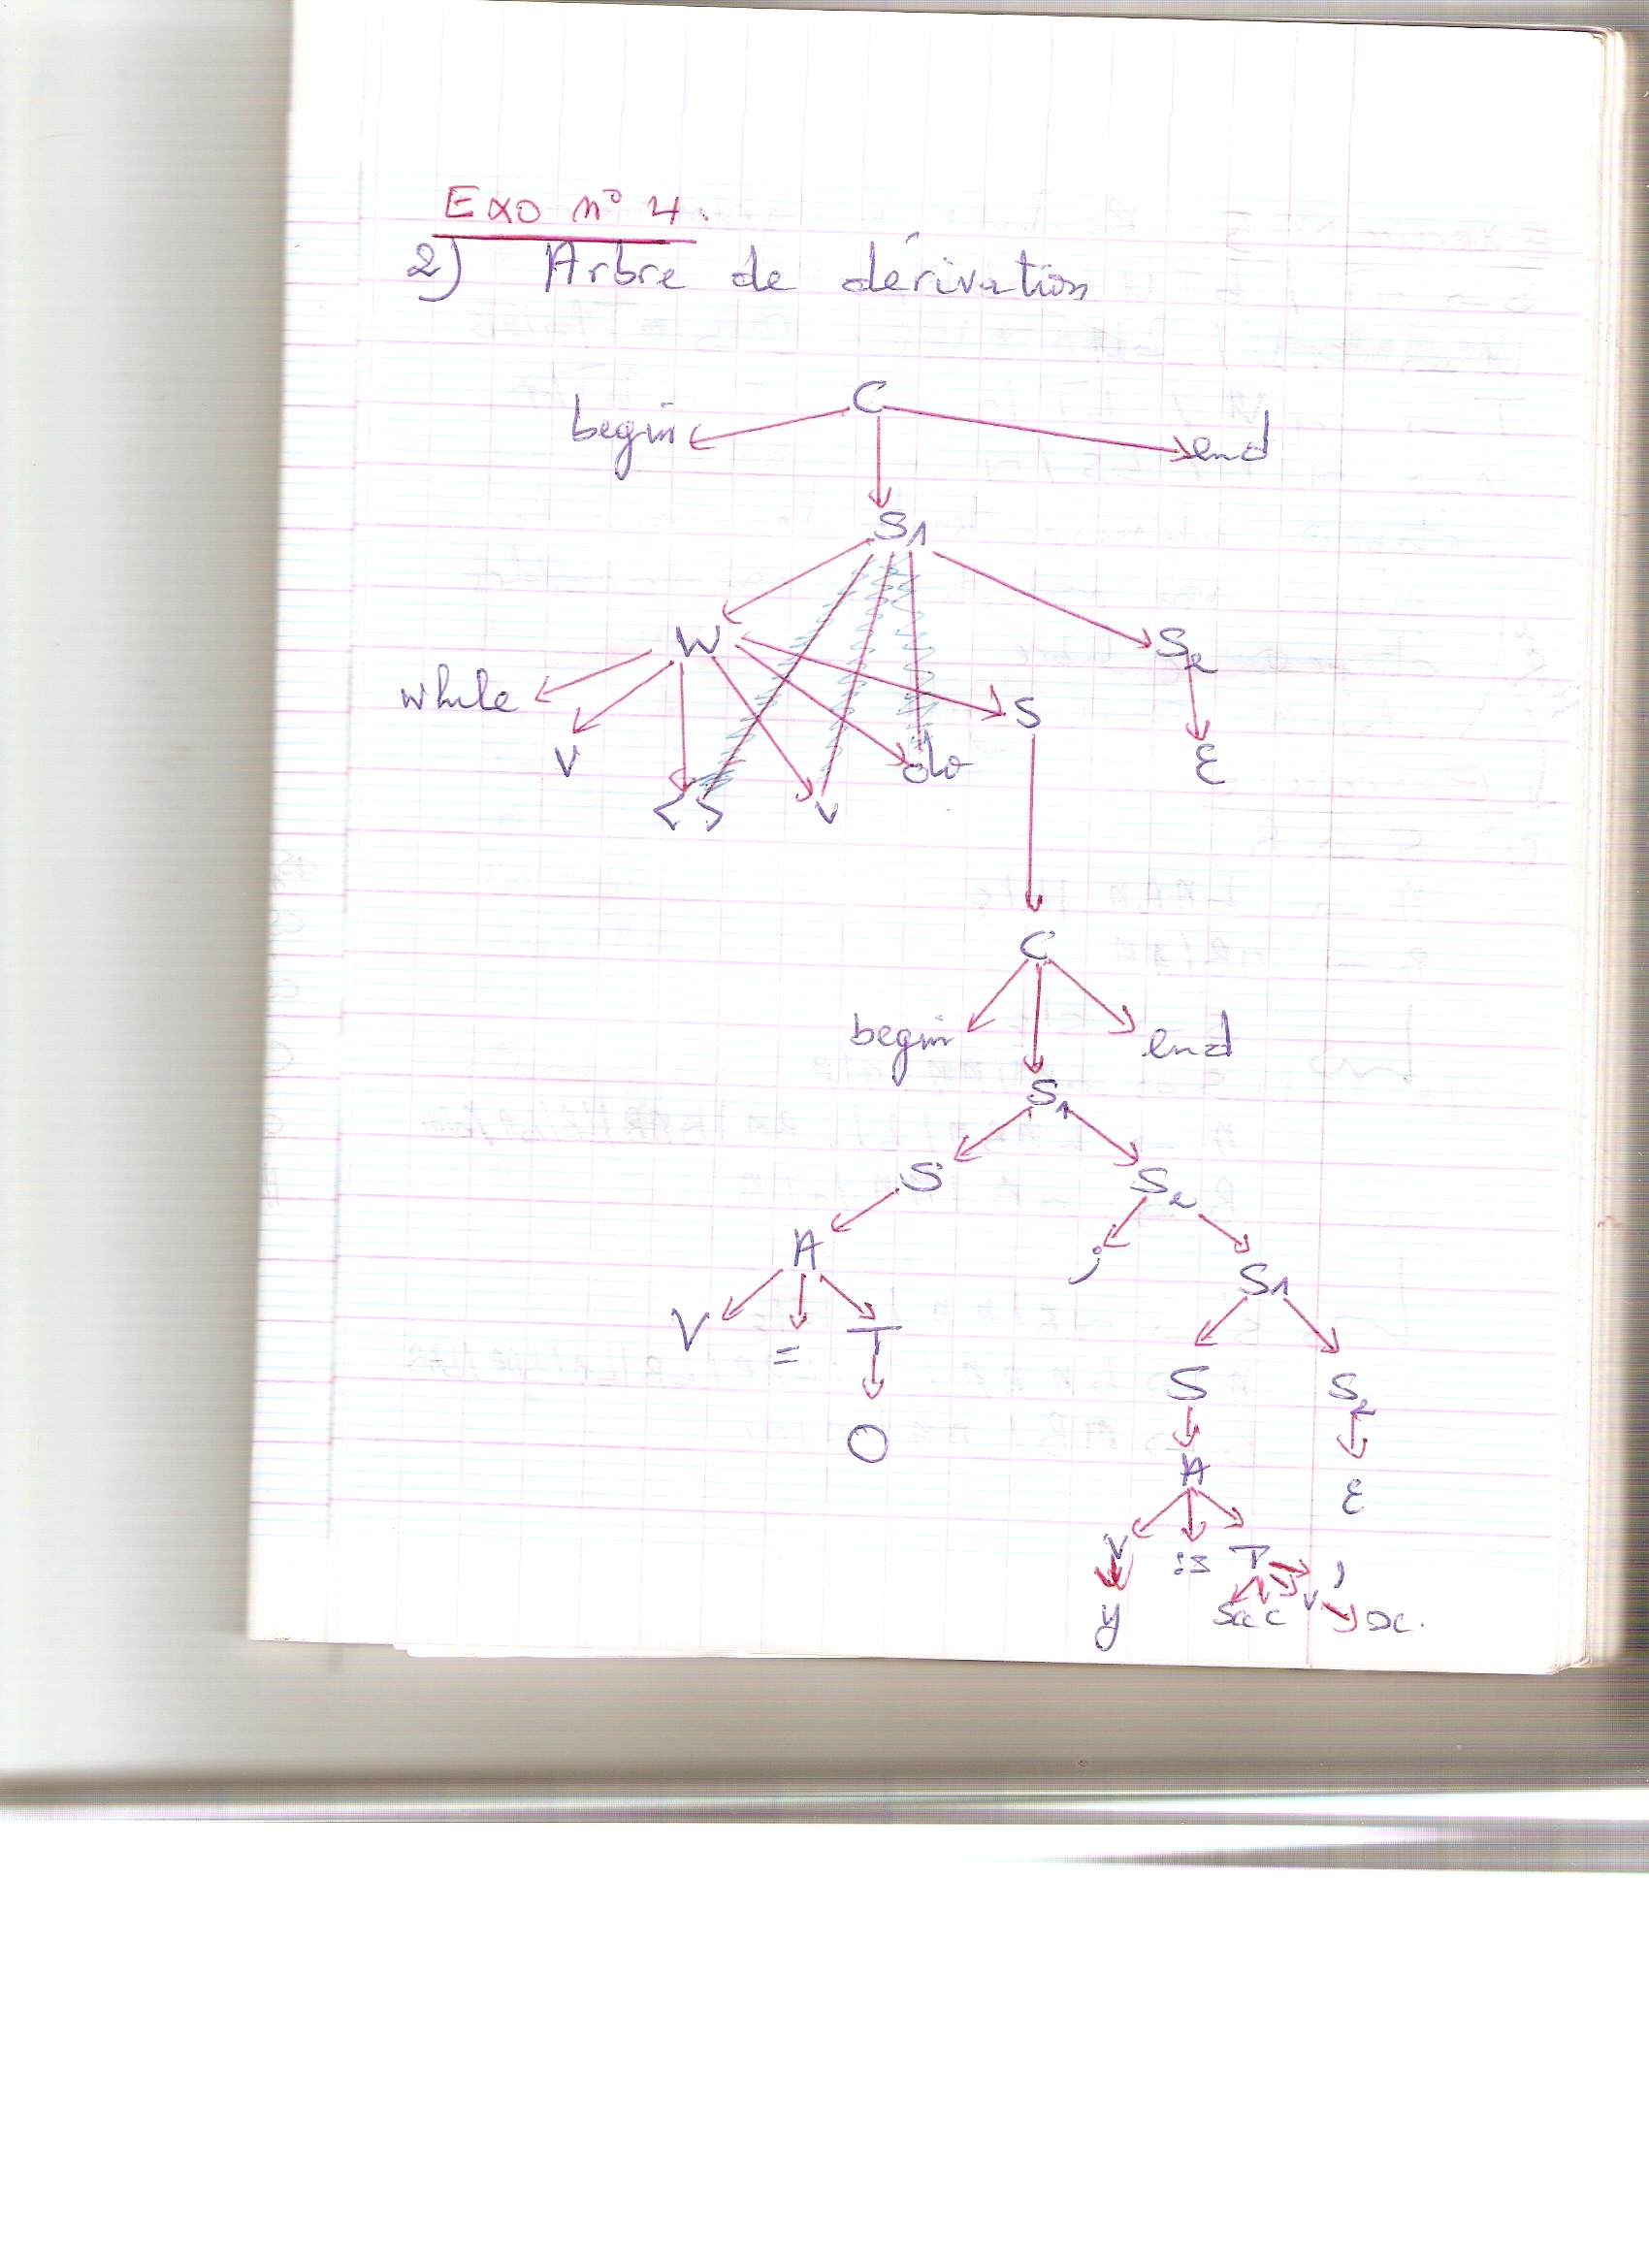 Exo n° 4.
2) Arbre de dérivation
C
begin end
S1
W S2
while S
V do ε
<> V
C
begin end
S1
S S2
A ; S1
V = T
S S2
O
A ε
V := T ;
y succ v x.